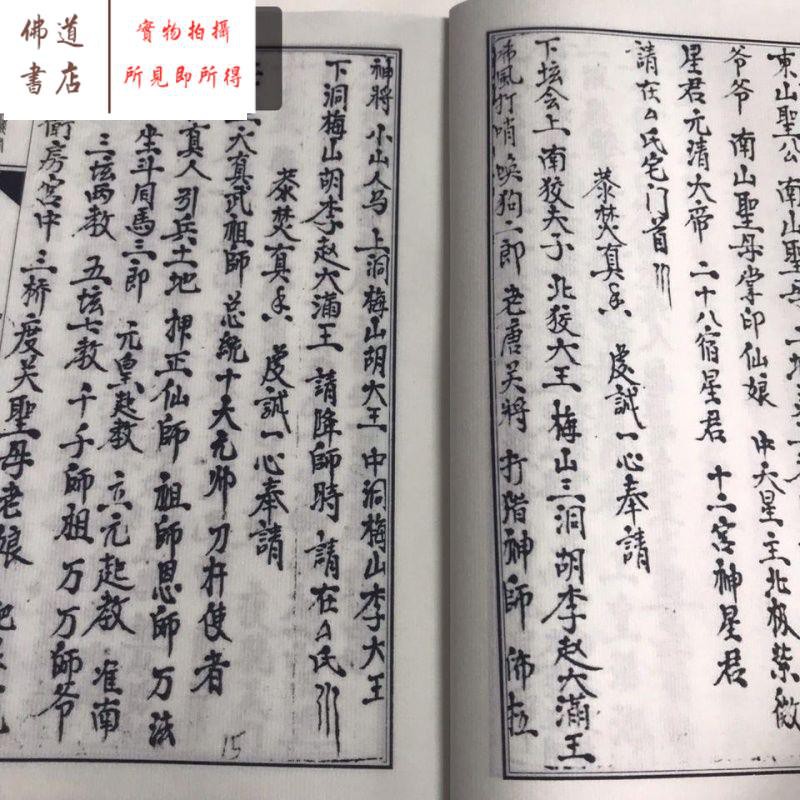 佛道
書店
實物拍攝
所見即所得
東山聖公 南山聖母
爷爷 南山聖母掌印仙娘 中天星主北极紫微
星君元清大帝 二十八宿星君 十二宮神星君
請在厶氏宅门首
恭焚真香 虔誠一心奉請
下坛会上南狡夫子 北狡大王 梅山三洞胡李赵大滿王
風打哨喚狗二郎 老唐关將 打猎神師
神將 小山人马 上洞梅山胡大王 中洞梅山李大王
下洞梅山胡李赵大滿王 請降師時 請在厶氏
恭焚真香 虔誠一心奉請
大真武祖師 总統十天元帅 刀杆使者
真人引兵土地 押正仙師 祖師恩師万法
坐斗同馬三郎 元皇赵教 立元起教 淮南
三坛两教 五坛七教 千千師祖 万万師爷
衙房宮中 三桥度关聖母老娘
15